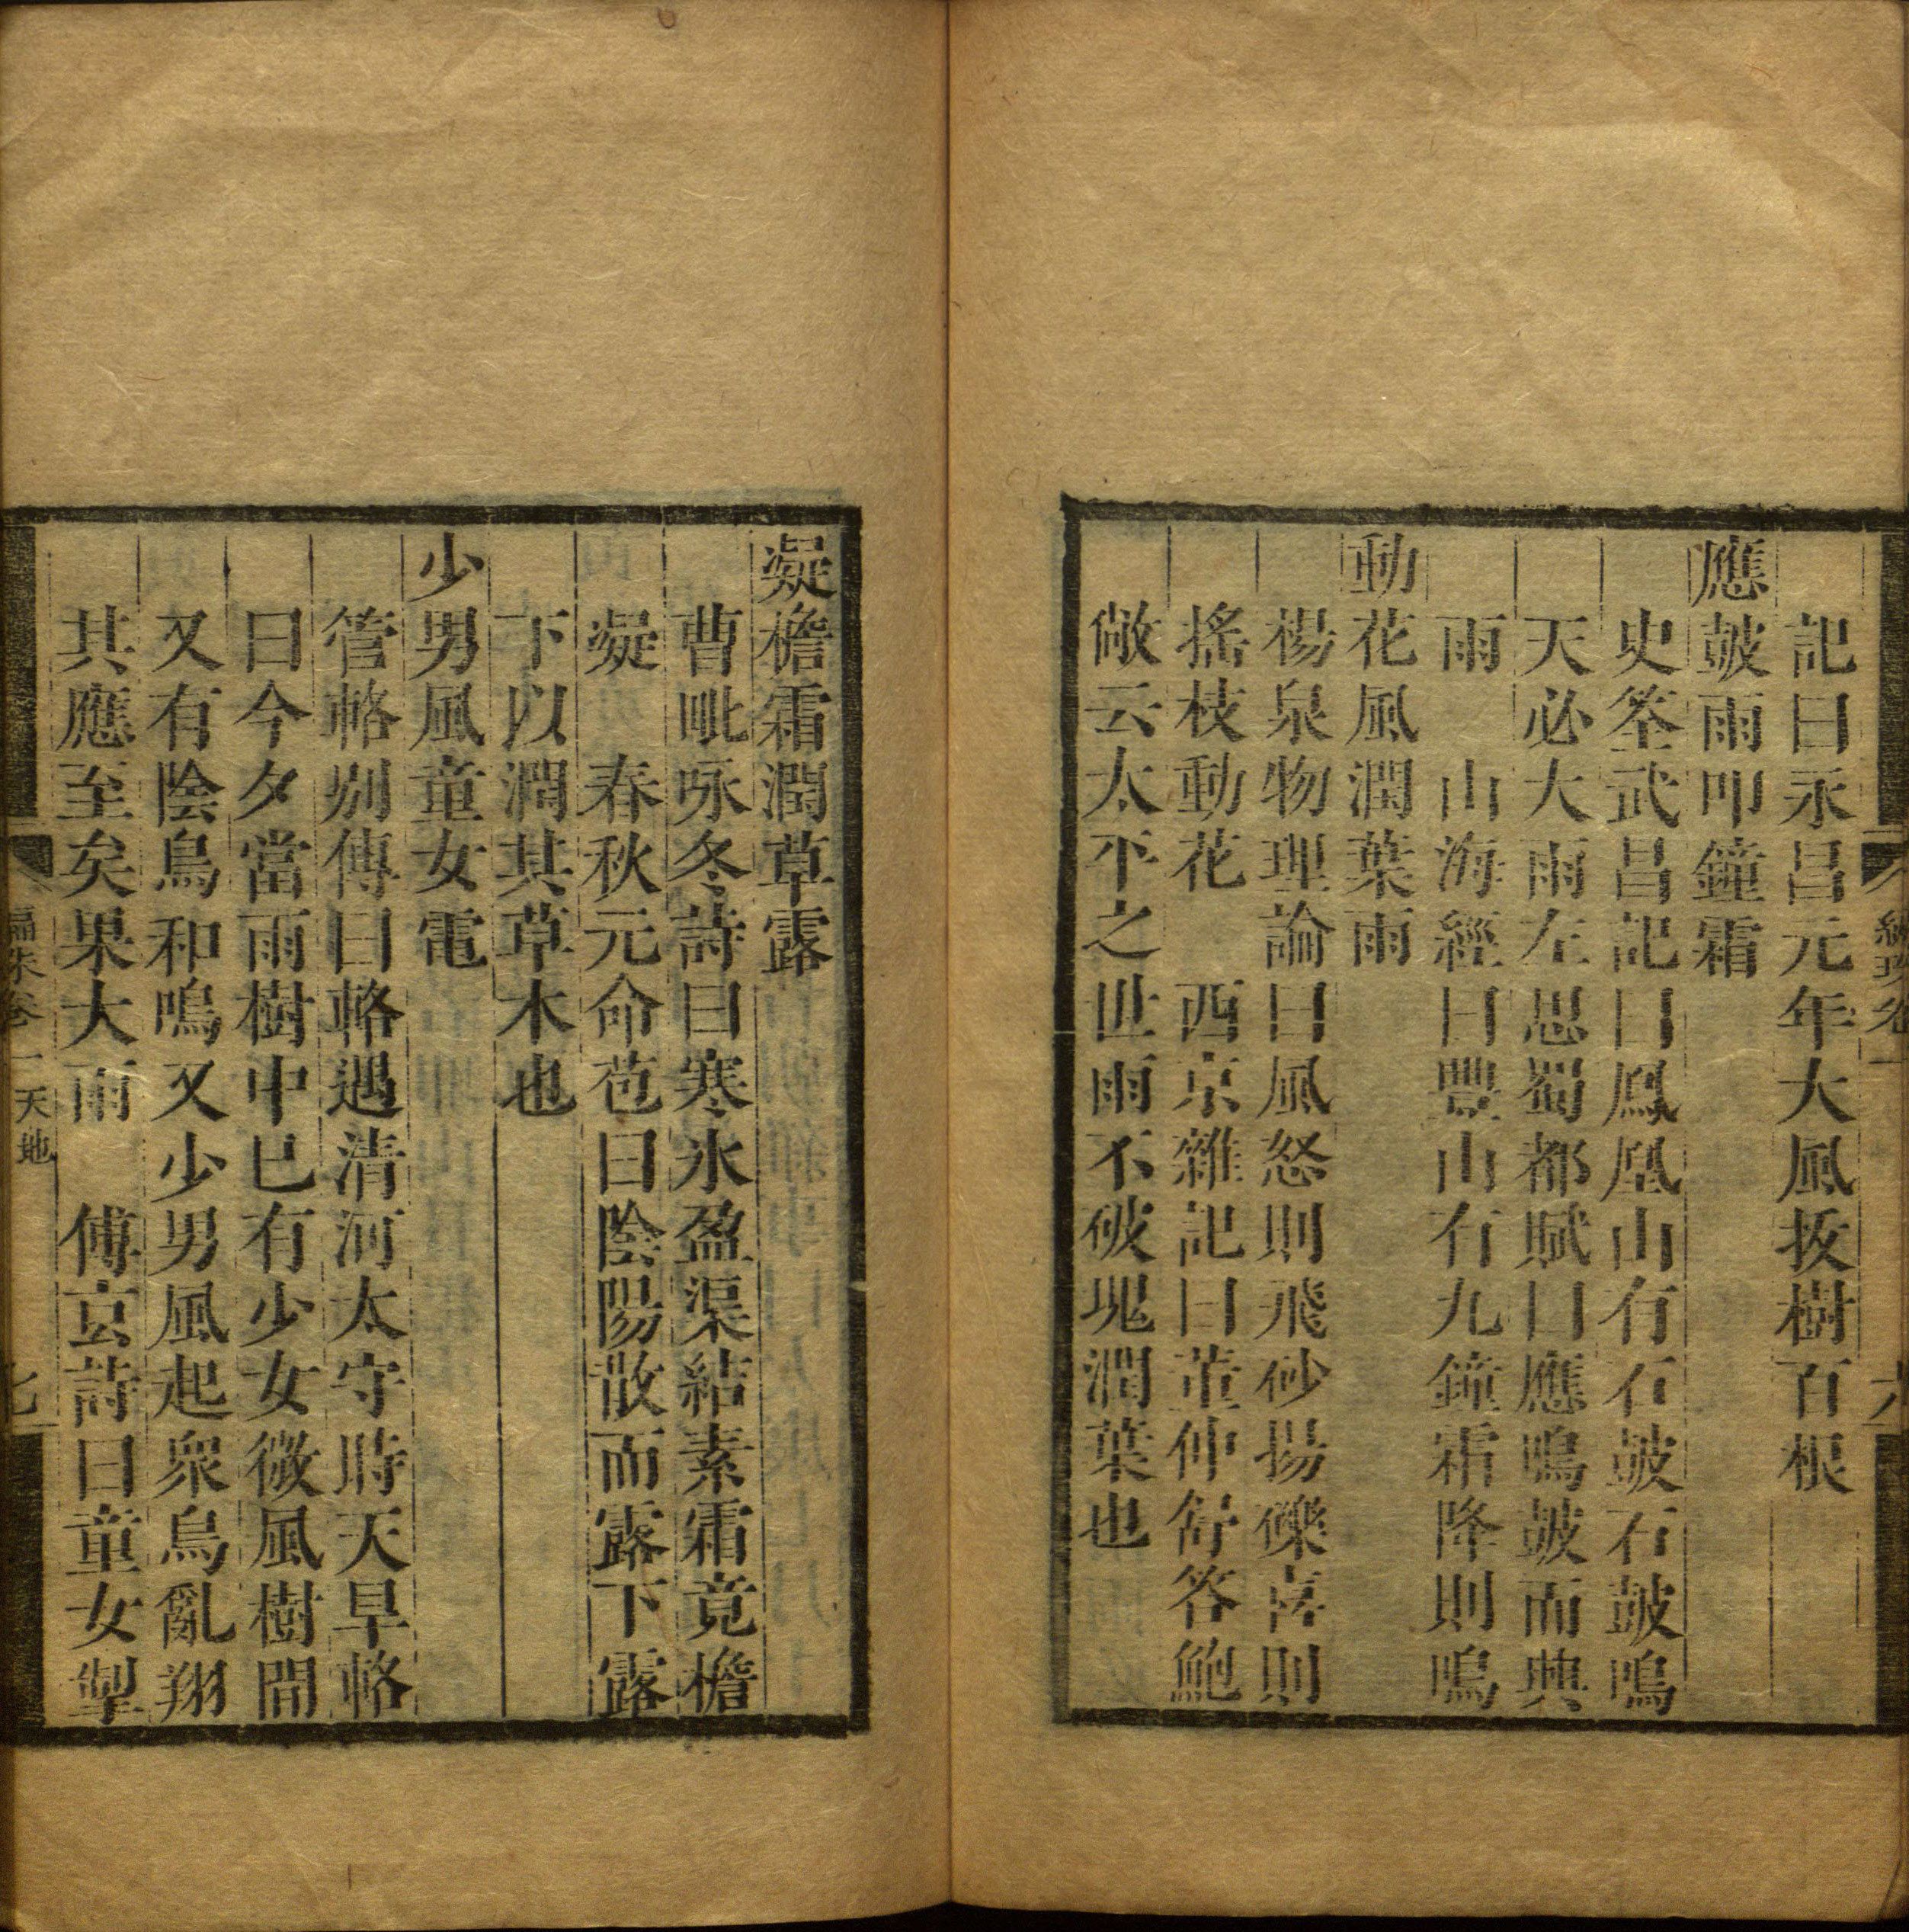 記曰永昌元年大風拔樹百根
應皷雨叩鐘霜
史筌武昌記曰鳳凰山有石皷石皷鳴
天必大雨左思蜀都賦曰應鳴皷而興
雨　山海經曰豐山有九鐘霜降則鳴
動花風潤葉雨
楊泉物理論曰風怒則飛砂揚礫喜則
搖枝動花　西京雜記曰董仲舒答鮑
敞云太平之世雨不破塊潤葉也
凝檐霜潤草露
曹毗咏冬詩曰寒氷盈渠結素霜竟檐
凝　春秋元命苞曰陰陽散而露下露
下以潤其草木也
少男風童女電
管輅别傳曰輅遇清河太守時天旱輅
曰今夕當雨樹中巳有少女微風樹間
又有陰鳥和鳴又少男風起衆鳥亂翔
其應至矣果大雨　傅玄詩曰童女掣
編珠卷一 天地
七